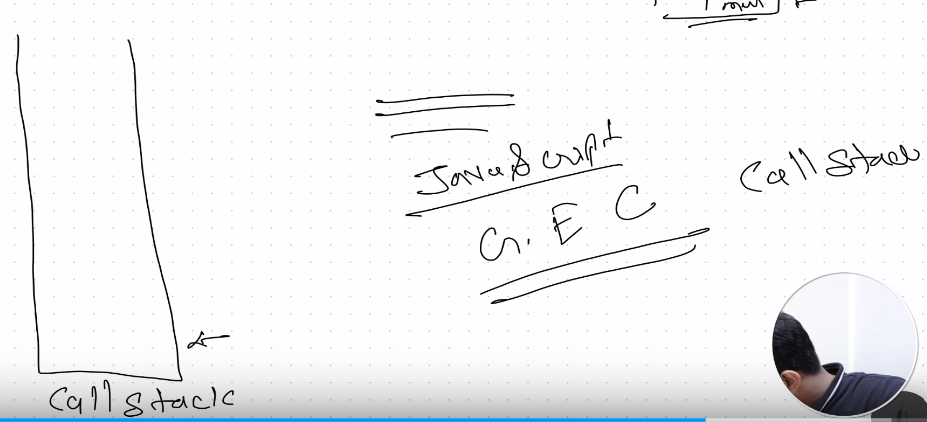 JavaScript
G. E C
Call Stack
Call stack